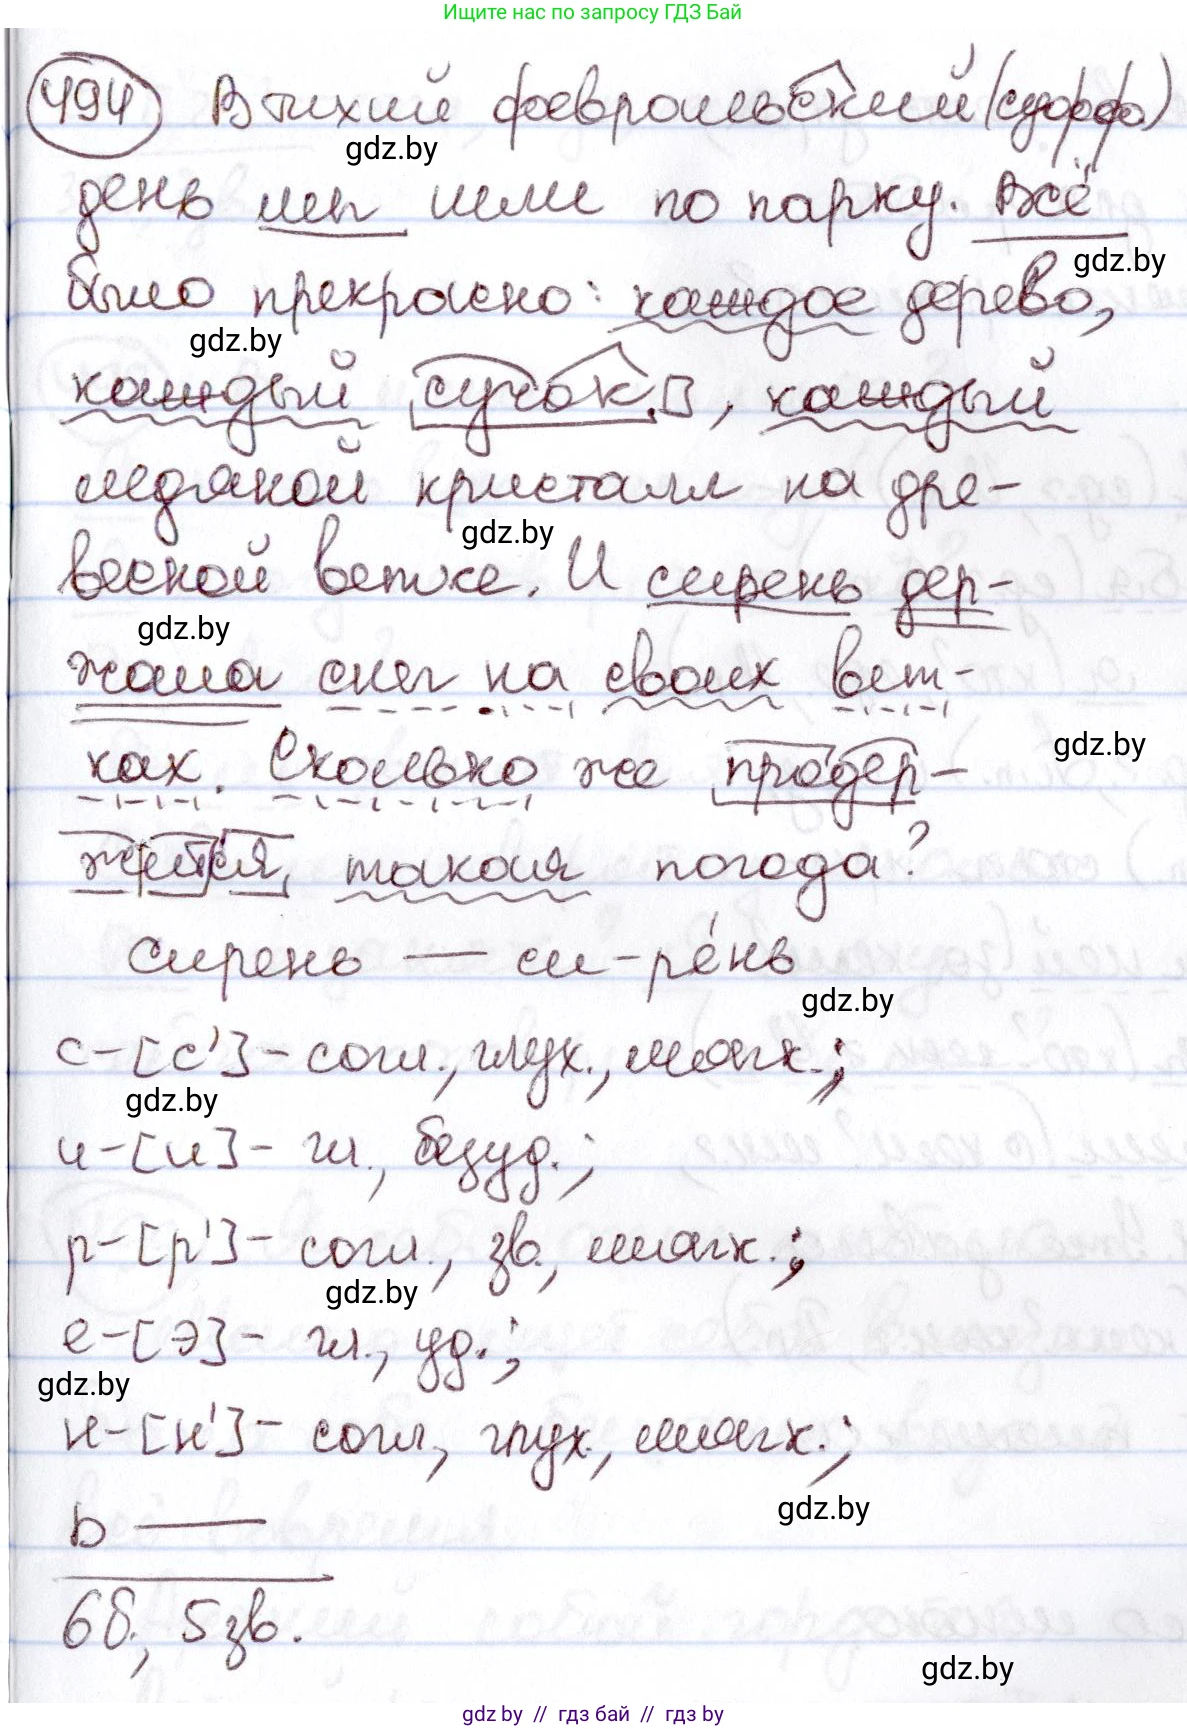 Ищите нас по запросу ГДЗ Бай
494 В тихий февральский (суфф)
gdz.by
день мы шли по парку. Всё
gdz.by
было прекрасно: каждое дерево,
gdz.by
каждый сучок, каждый
ледяной кристалл на дре-
gdz.by
весной ветке. И сирень дер-
gdz.by
жала снег на своих вет-
gdz.by
ках. Сколько же продер-
жится такая погода?
сирень — си-ре́нь
gdz.by
с-[с']-согл., глух., мягк.;
gdz.by
и-[и]- гл., безуд.;
р-[р']- согл., зв., мягк.;
gdz.by
е-[э]- гл., уд.;
gdz.by
н-[н']- согл, глух., мягк.;
gdz.by
ь —
6б., 5зв.
gdz.by
gdz by // гдз бай // gdz by